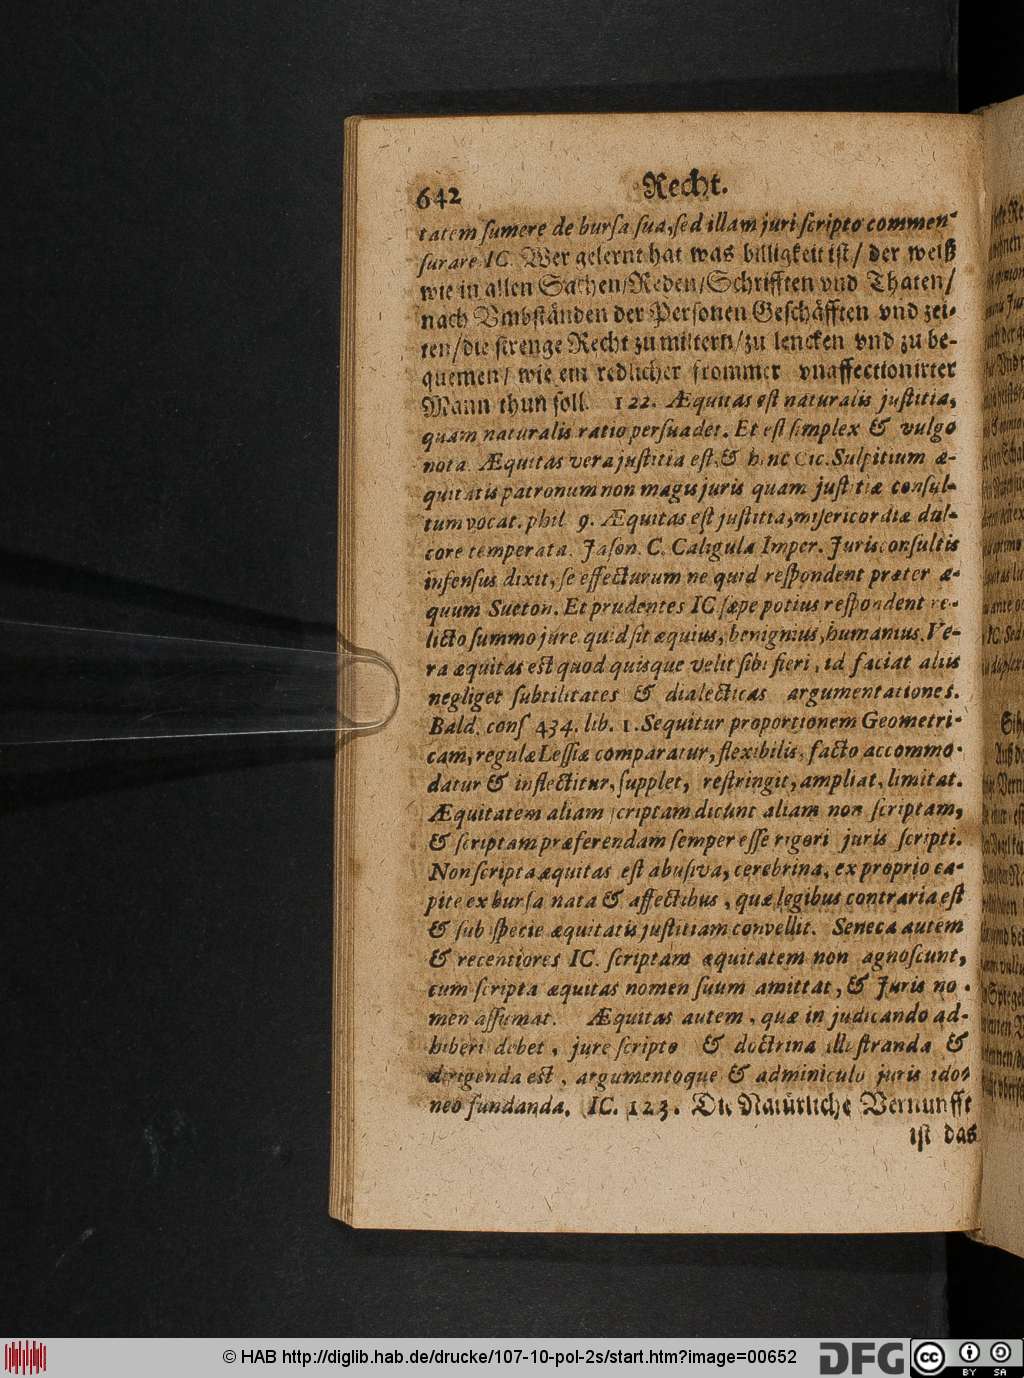 642 Recht.
tatem ſumere de burſa ſua, ſed illam juri ſcripto commen-
ſurare IC. Wer gelernt hat was billigkeit iſt/ der weiß
wie in allen Sachen/Reden/Schrifften vnd Thaten/
nach Vmbſtänden der Perſonen Geſchäfften vnd zei-
ten/die ſtrenge Recht zu miltern/zu lencken vnd zu be-
quemen/ wie ein redlicher frommer vnaffectionirter
Mann thun ſoll. 122. Æquitas eſt naturalis juſtitia,
quam naturalis ratio perſuadet. Et eſt ſimplex & vulgo
nota. Æquitas vera juſtitia eſt, & hinc Cic. Sulpitium æ-
quitatis patronum non magis juris quam juſtitiæ conſul-
tum vocat. phil 9. Æquitas eſt juſtitia, miſericordiæ dul-
core temperata. Jaſon. C. Caligula Imper. Jurisconſultis
infenſus dixit, ſe effecturum ne quid reſpondent præter æ-
quum Sueton. Et prudentes IC ſæpe potius reſpondent re-
licto ſummo jure quid ſit æquius, benignius, humanius. Ve-
ra æquitas eſt quod quisque velit ſibi fieri, id faciat aliis
negliget ſubtilitates & dialecticas argumentationes.
Bald. conſ 434. lib. 1. Sequitur proportionem Geometri-
cam, regulæ Leſſiæ comparatur, flexibilis, facto accommo-
datur & inflectitur, ſupplet, reſtringit, ampliat, limitat.
Æquitatem aliam ſcriptam dicunt aliam non ſcriptam,
& ſcriptam præferendam ſemper eſſe rigori juris ſcripti.
Non ſcripta æquitas eſt abuſiva, cerebrina, ex proprio ca-
pite ex burſa nata & affectibus, quæ legibus contraria eſt
& ſub ſpecie æquitatis juſtitiam convellit. Seneca autem
& recentiores IC. ſcriptam æquitatem non agnoſcunt,
cum ſcripta æquitas nomen ſuum amittat, & Juris no-
men aſſumat. Æquitas autem, quæ in judicando ad-
hiberi debet, jure ſcripto & doctrina illuſtranda &
dirigenda eſt, argumentoque & adminiculo juris ido-
neo fundanda. IC. 123. Die Natürliche Vernunfft
iſt das
© HAB http://diglib.hab.de/drucke/107-10-pol-2s/start.htm?image=00652 DFG cc BY SA